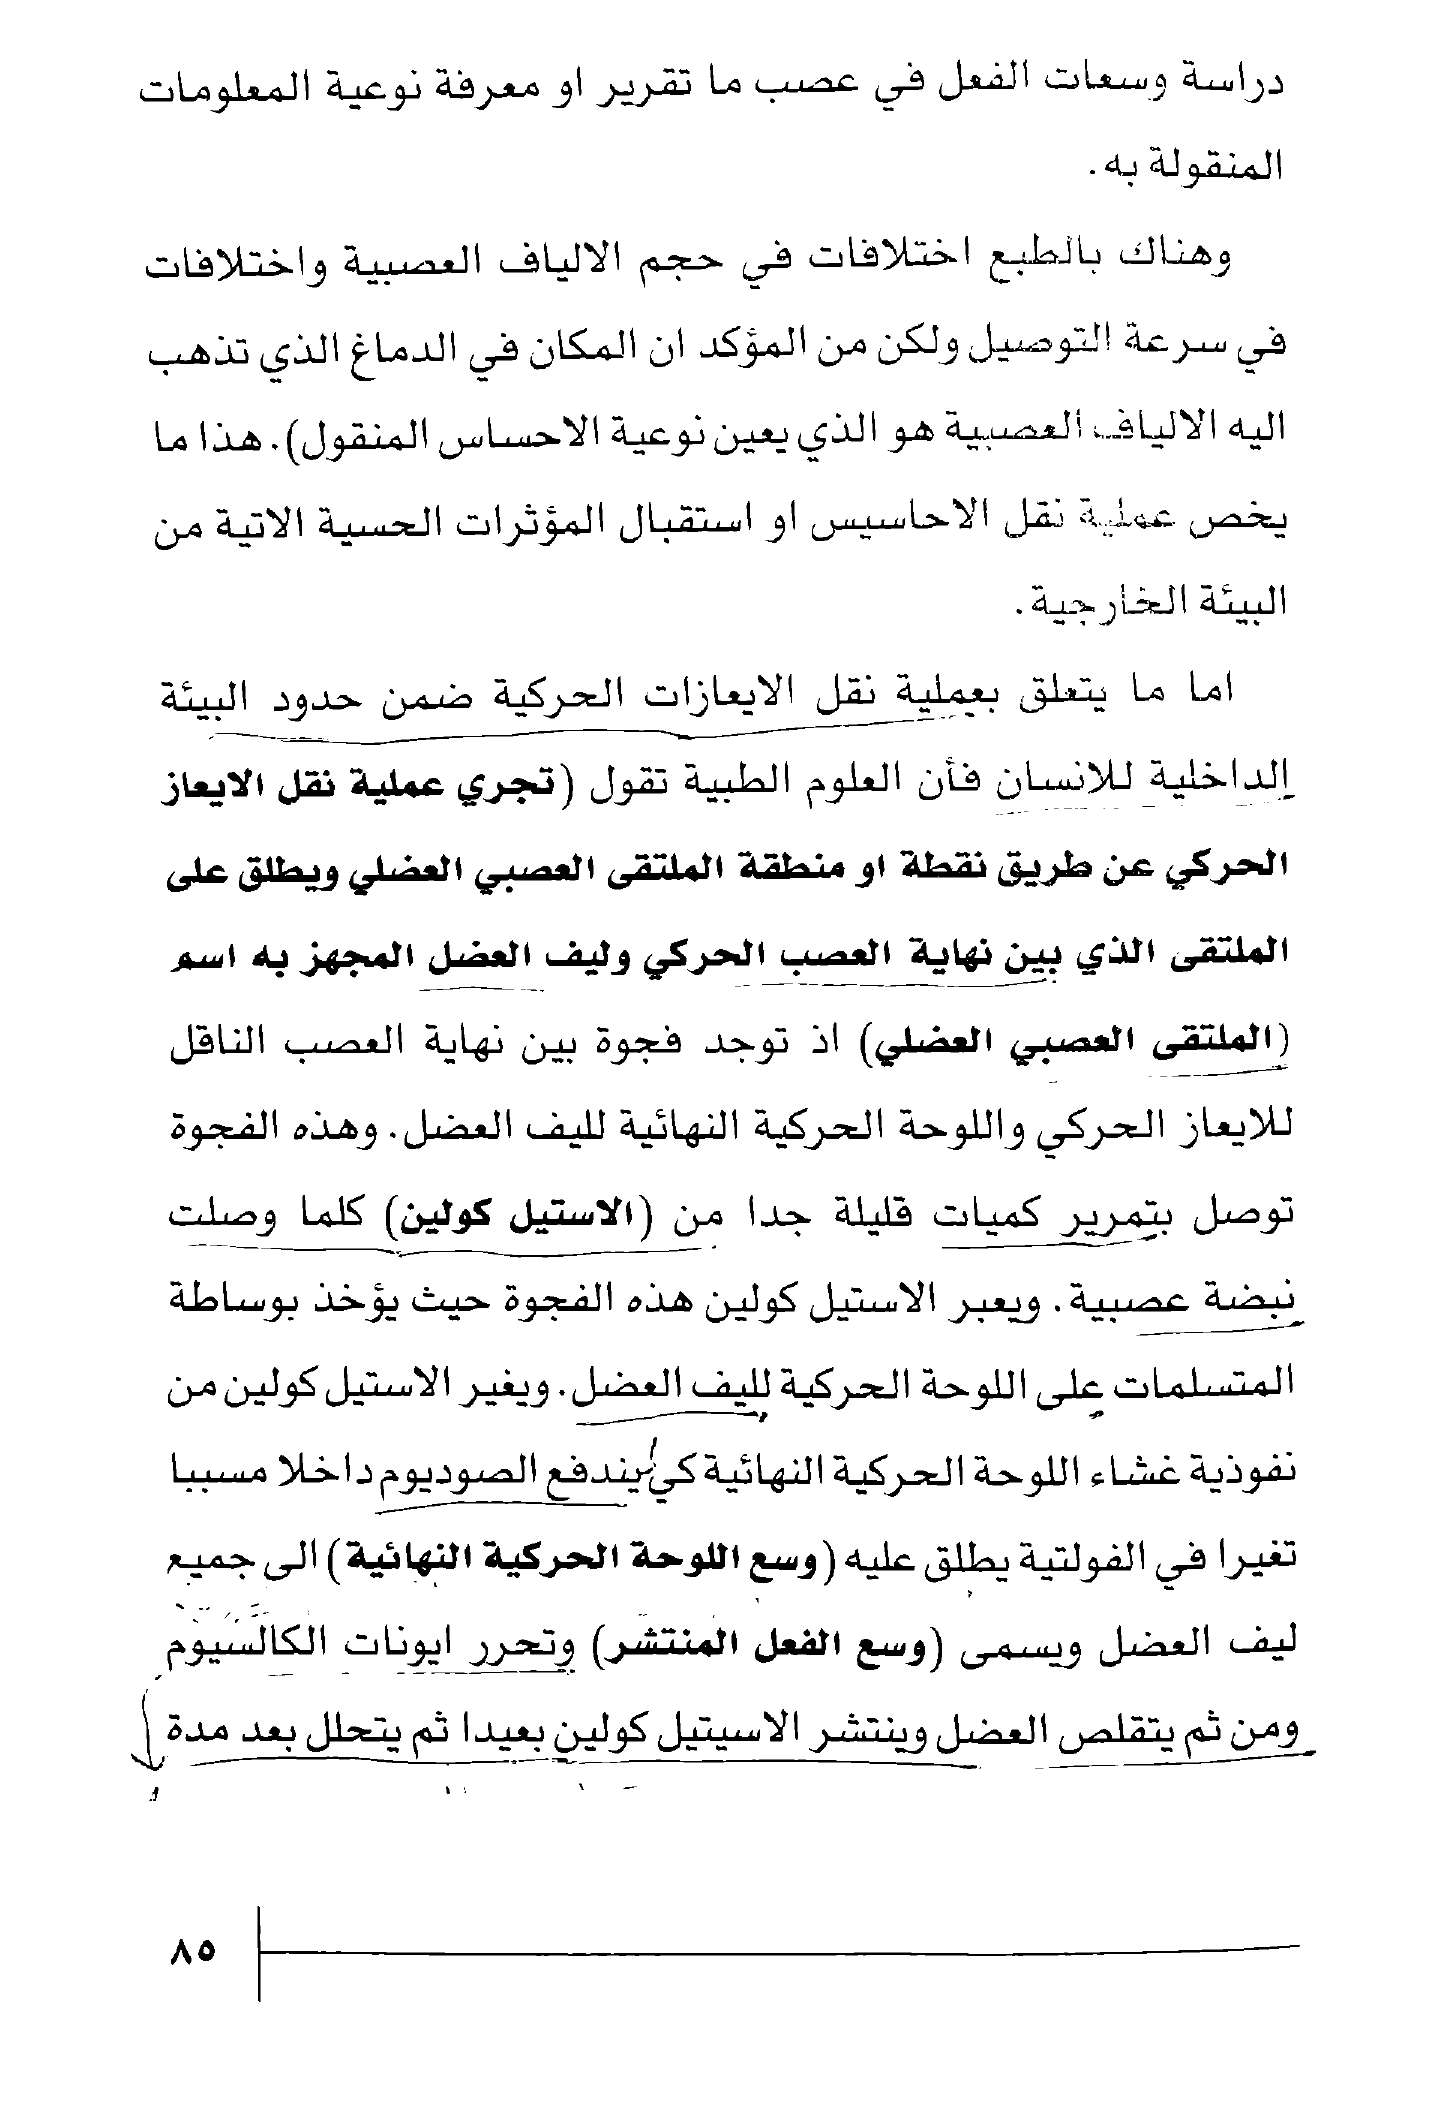 دراسة وسعات الفعل في عصب ما تقرير او معرفة نوعية المعلومات
المنقولة به.
وهناك بالطبع اختلافات في حجم الالياف العصبية واختلافات
في سرعة التوصيل ولكن من المؤكد ان المكان في الدماغ الذي تذهب
اليه الالياف العصبية هو الذي يعين نوعية الاحساس المنقول). هذا ما
يخص عملية نقل الاحاسيس او استقبال المؤثرات الحسية الاتية من
البيئة الخارجية.
اما ما يتعلق بعملية نقل الايعازات الحركية ضمن حدود البيئة
الداخلية للانسان فأن العلوم الطبية تقول (تجري عملية نقل الايعاز
الحركي عن طريق نقطة او منطقة الملتقى العصبي العضلي ويطلق على
الملتقى الذي بين نهاية العصب الحركي وليف العضل المجهز به اسم
(الملتقى العصبي العضلي) اذ توجد فجوة بين نهاية العصب الناقل
للايعاز الحركي واللوحة الحركية النهائية لليف العضل. وهذه الفجوة
توصل بتمرير كميات قليلة جدا من (الاستيل كولين) كلما وصلت
نبضة عصبية. ويعبر الاستيل كولين هذه الفجوة حيث يؤخذ بوساطة
المتسلمات على اللوحة الحركية لليف العضل. ويغير الاستيل كولين من
نفوذية غشاء اللوحة الحركية النهائية كي يندفع الصوديوم داخلا مسببا
تغيرا في الفولتية يطلق عليه (وسع اللوحة الحركية النهائية) الى جميع
ليف العضل ويسمى (وسع الفعل المنتشر) وتحرر ايونات الكالسيوم
ومن ثم يتقلص العضل وينتشر الاسيتيل كولين بعيدا ثم يتحلل بعد مدة
٨٥